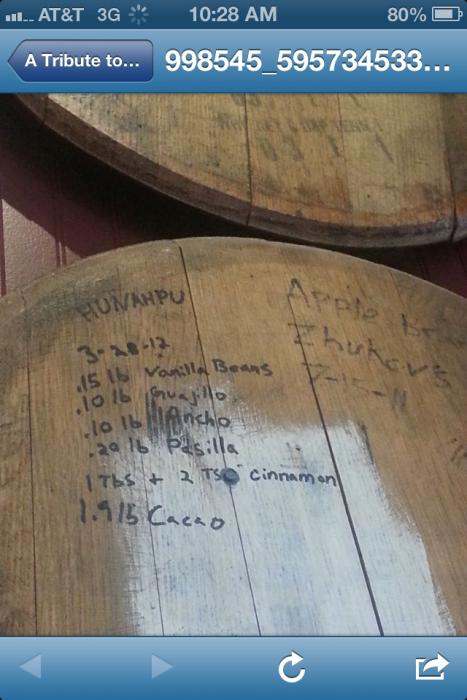 AT&T 3G 10:28 AM 80%
A Tribute to... 998545_595734533...
HUNAHPU
3-28-12
.15 lb Vanilla Beans
.10 lb Guajillo
.10 lb Ancho
.20 lb Pasilla
1 Tbs + 2 TSP cinnamon
1.9 lb Cacao
Apple
Zhukov's
7-15-11